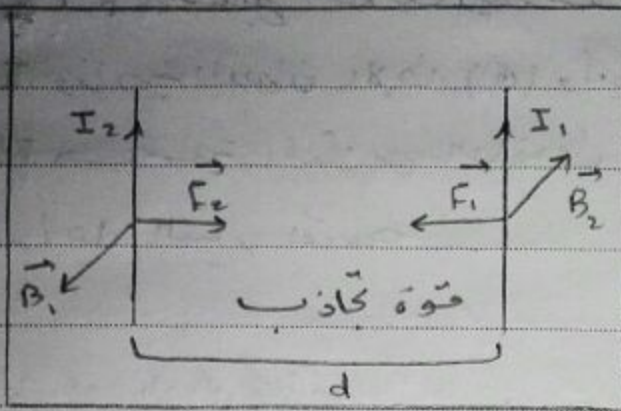 I₂ I₁
F⃗₂ F⃗₁ B⃗₂
B⃗₁
قوة تجاذب
d